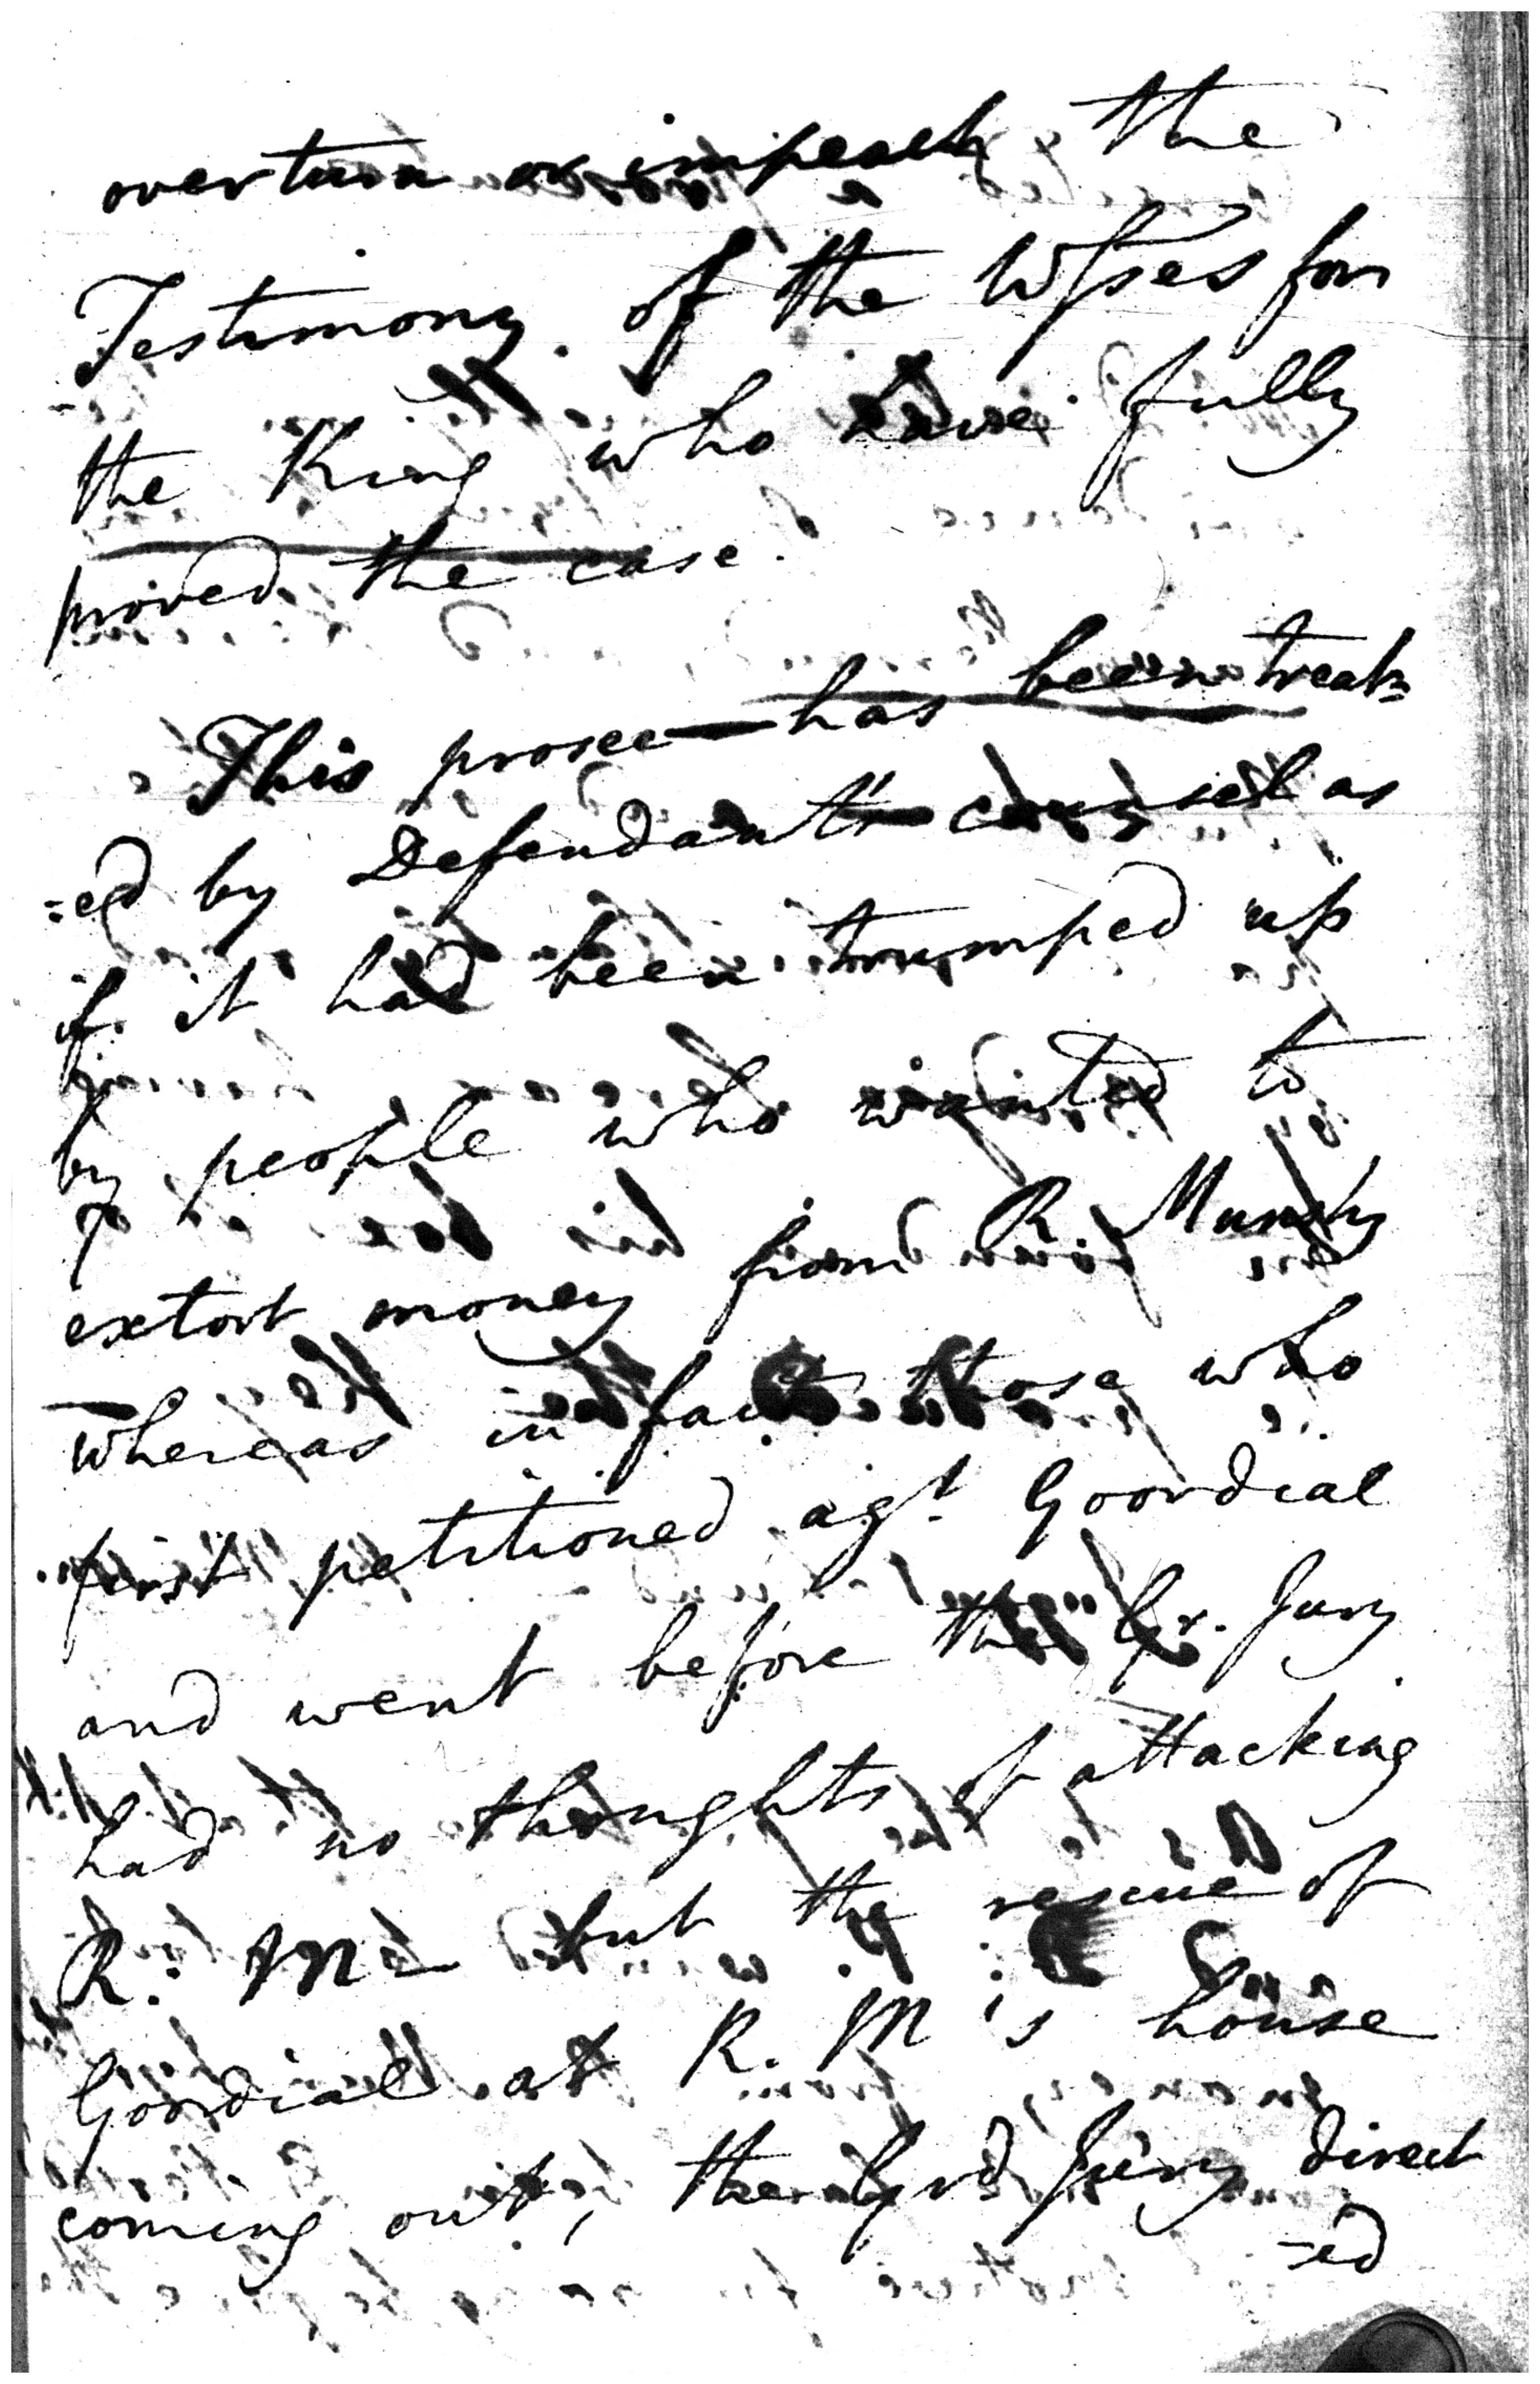 overturn or impeach the
Testimony of the Wsses for
the King who have fully
proved the case.
This prosec— has been treat=
=ed by Defendant's counsel as
if it had been trumped up
by people who wanted to
extort money from R Mundy
whereas in fact those who
first petitioned agt. Goordial
and went before the Gr. Jury
had no thoughts of attacking
R. M— but the rescue of
Goordial at R. M's house
coming out, the Grd Jury direct
=ed